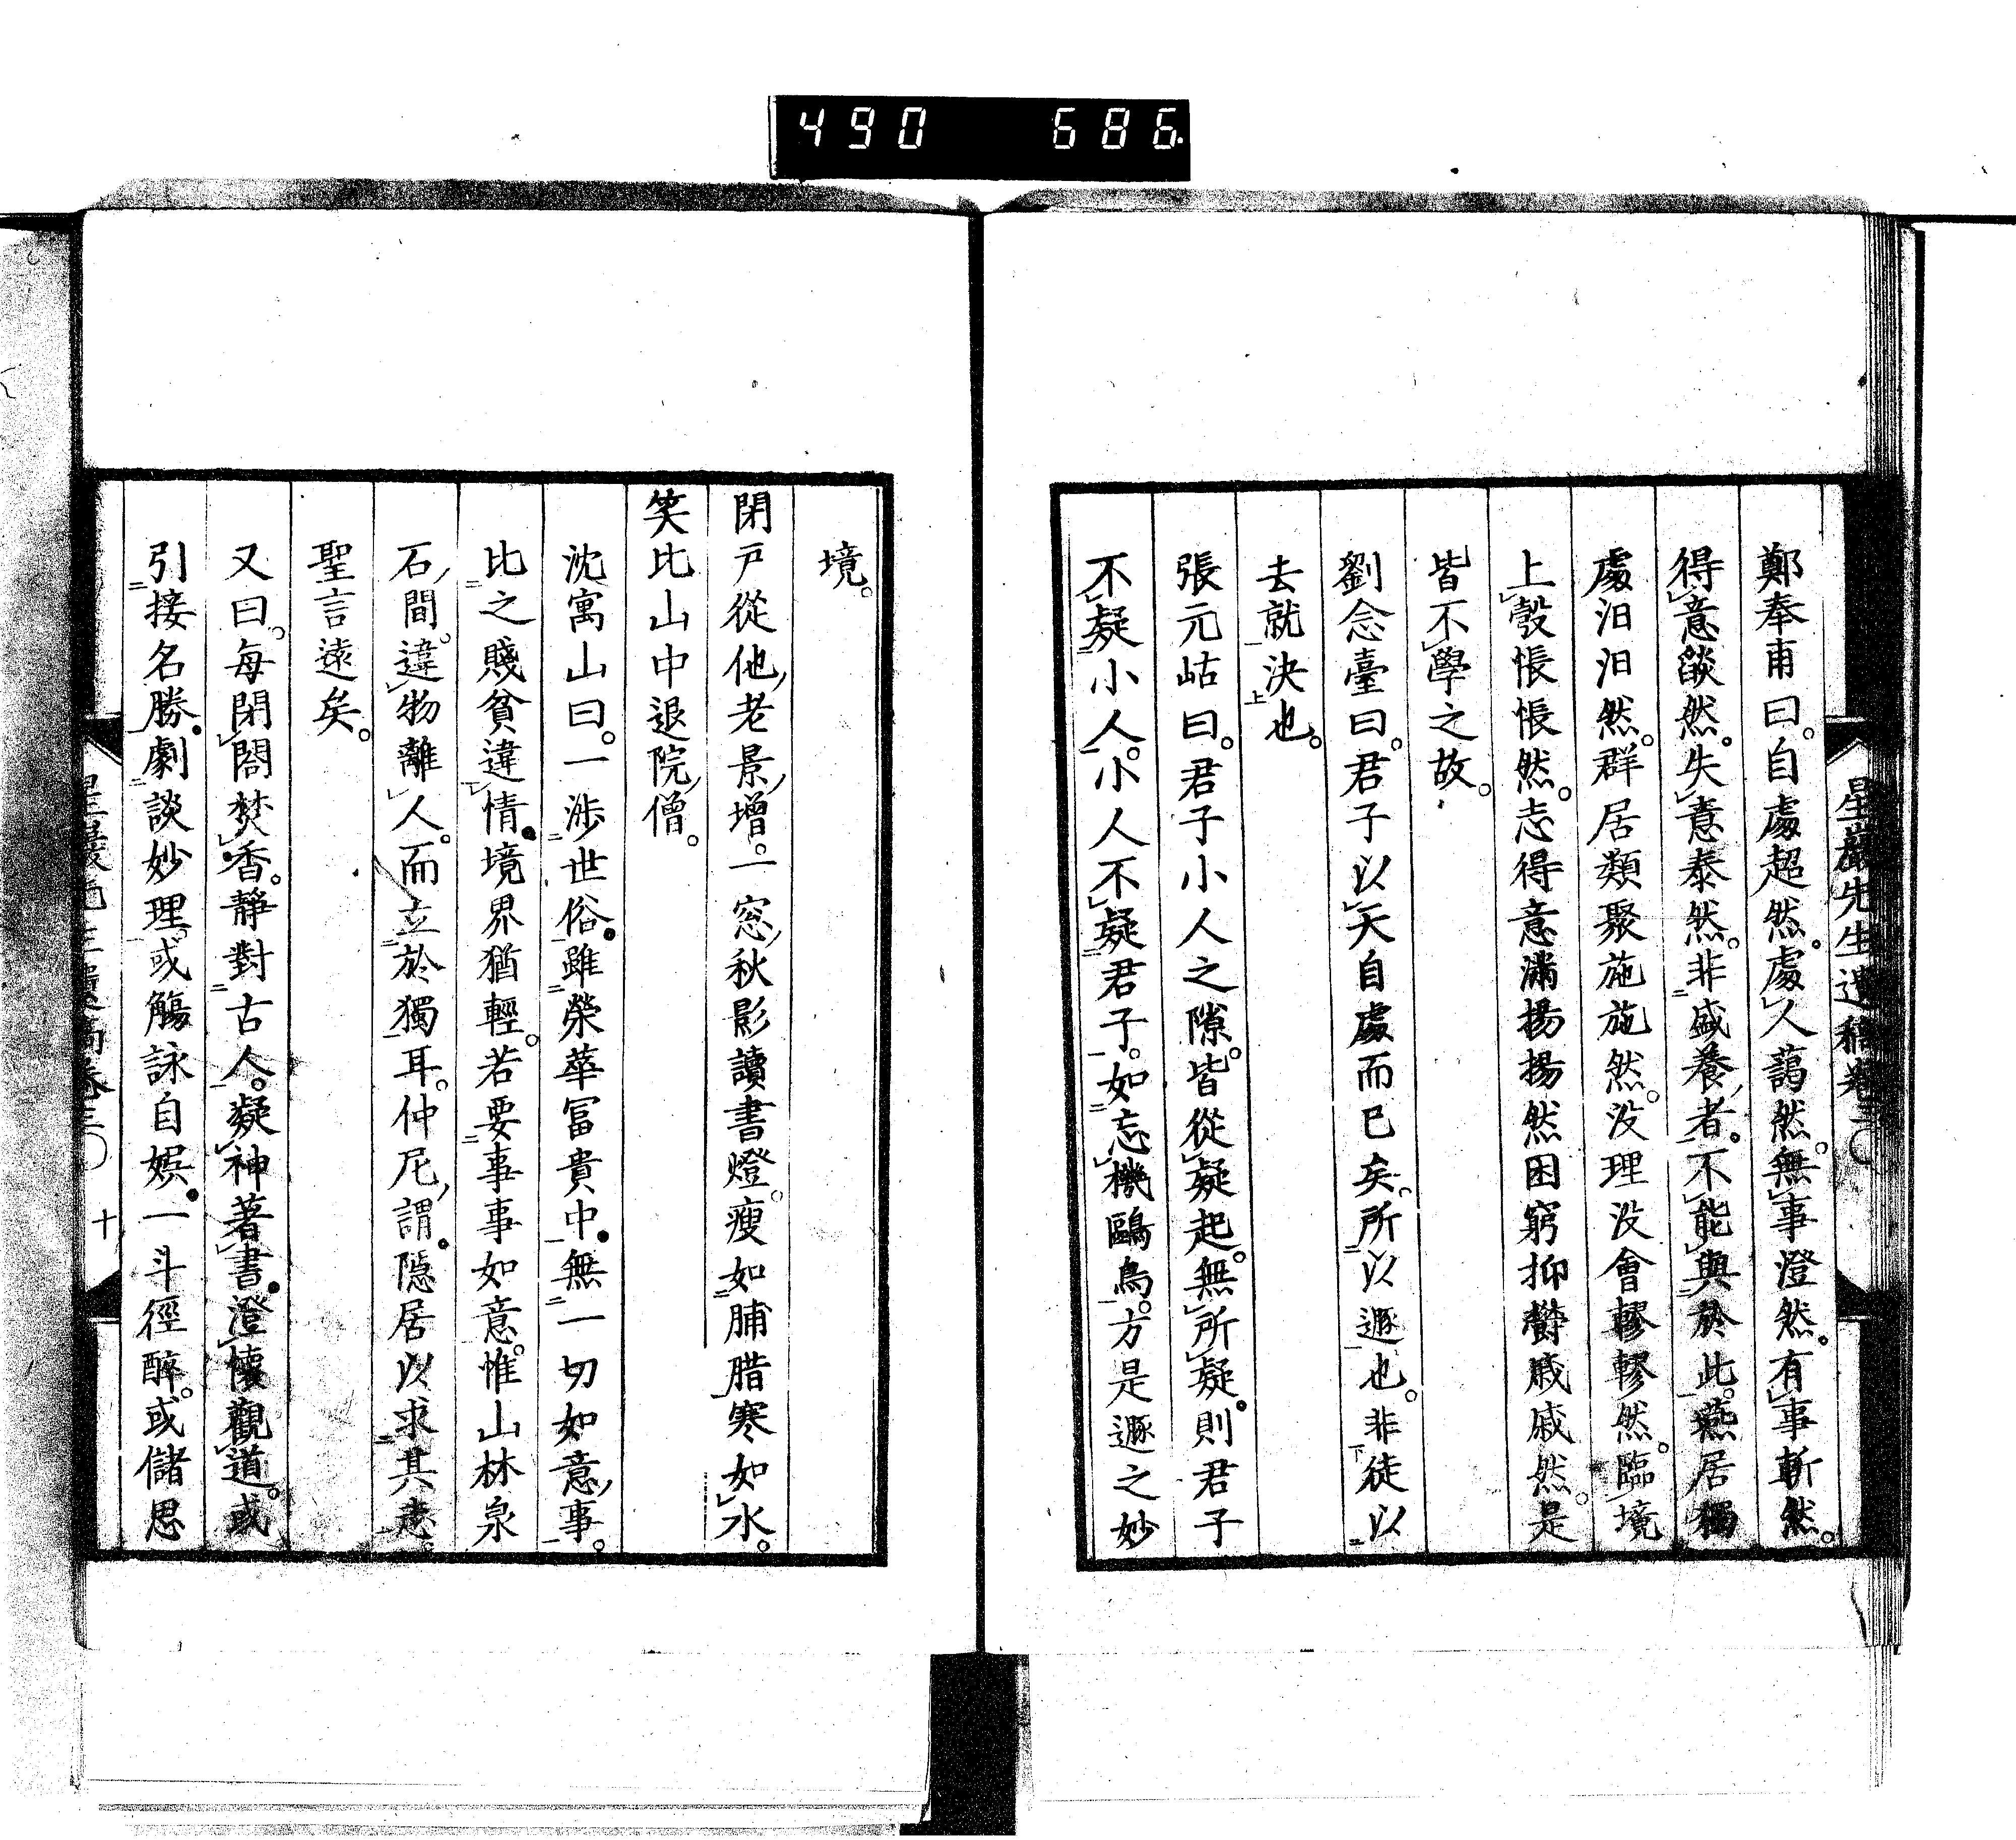 490 686
星巖先生遺稿卷三
鄭奉甫曰。自處超然。處人藹然。無事澄然。有事斬然。
得意歛然。失意泰然。非盛養者。不能與於此。燕居獨
處汨汨然。群居類聚施施然。沒理沒會轇轇然。臨境
上彀悵悵然。志得意滿揚揚然困窮抑鬱戚戚然。是
皆不學之故。
劉念臺曰。君子以天自處而已矣。所以遯也。非徒以
去就決也。
張元岵曰。君子小人之隙。皆從疑起。無所疑。則君子
不疑小人。小人不疑君子。如忘機鷗鳥。方是遯之妙
境。
閉戸從他老景增。一窓秋影讀書燈。瘦如脯腊寒如水。
笑比山中退院僧。
沈寓山曰。一渉世俗。雖榮華冨貴中。無一切如意事。
比之賤貧違情。境界猶輕。若要事事如意。惟山林泉
石間。違物離人。而立於獨耳。仲尼謂。隱居以求其志。
聖言遠矣。
又曰。每閉閤焚香。靜對古人。凝神著書。澄懷觀道。或
引接名勝。劇談妙理。或觴詠自娯。一斗徑醉。或儲思
星巖先生遺稿卷三 十